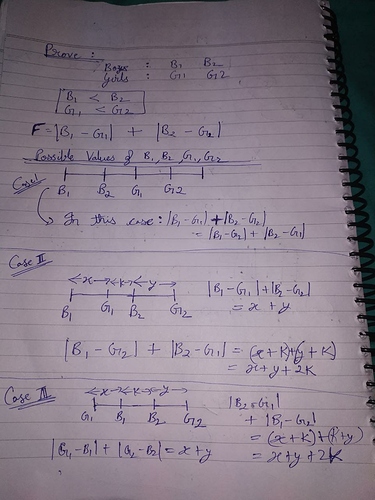 Prove :
Boys : B1 B2
Girls : G1 G2
B1 < B2
G1 < G2
F = |B1 - G1| + |B2 - G2|
Possible Values of B1, B2, G1, G2
Case I
B1 B2 G1 G2
In this case : |B1 - G1| + |B2 - G2|
= |B1 - G2| + |B2 - G1|
Case II
x k y
B1 G1 B2 G2
|B1 - G1| + |B2 - G2|
= x + y
|B1 - G2| + |B2 - G1| = (x + K) + (y + K)
= x + y + 2K
Case III
x k y
G1 B1 B2 G2
|B2 - G1|
+ |B1 - G2|
= (x + K) + (K + y)
= x + y + 2K
|G1 - B1| + |G2 - B2| = x + y